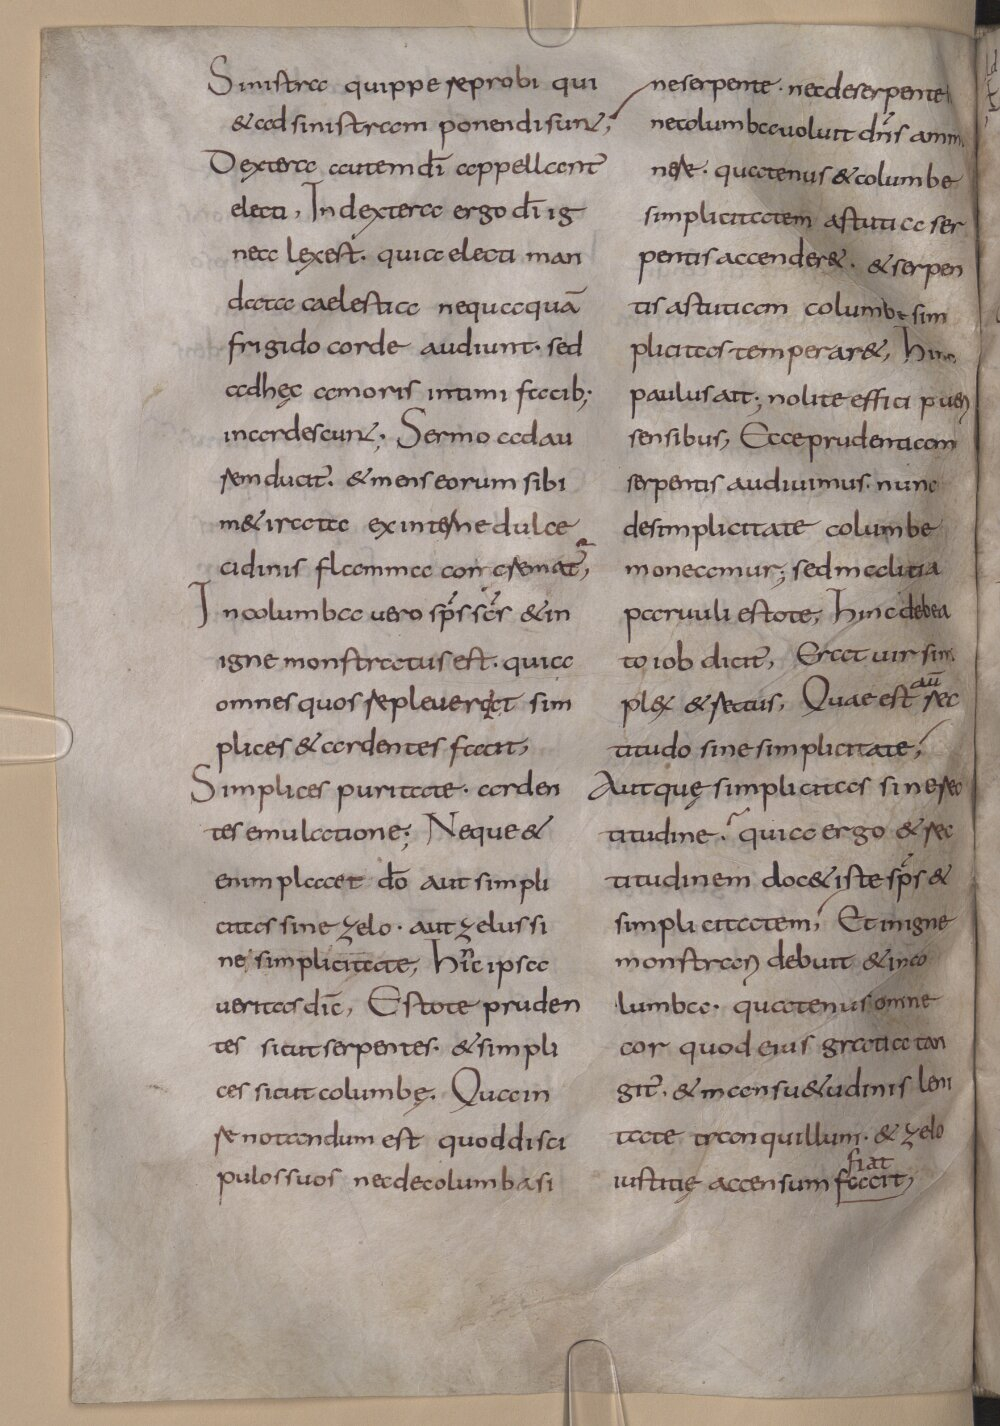 Sinistra quippe reprobi qui
& ad sinistram ponendi sunt;
Dextera autem dī appellant̄
electi, In dextera ergo dī ig
nea lex est. quia electi man
data caelestia nequaquā
frigido corde audiunt. sed
ad hęc amoris intimi facib;
inardescunt; Sermo ad au
rem ducit̄. & mens eorum sibi
m& irata ex interne dulce
cidinis flamma concremat̄,
In columba vero sp̄s sc̄s & in
igne monstratus est. quia
omnes quos repleverat sim
plices & ardentes facit,
Simplices puritate. arden
tes emulatione; Neque &
enim placet dō aut simpli
citas sine zelo. aut zelus si
ne simplicitate, hinc ipsa
veritas dic̄, Estote pruden
tes sicut serpentes. & simpli
ces sicut columbę. Qua in
re notandum est quod disci
pulos suos nec de columba si
ne serpente. nec de serpente
ne columba voluit dn̄s amm
nere. quatenus & columbe
simplicitatem astutia ser
pentis accender&. & serpen
tis astutiam columbe sim
plicitas temperar&, hinc
paulus ait; nolite effici pueri
sensibus, Ecce prudentiam
serpentis audiuimus. nunc
de simplicitate columbe
moneamur; sed malitia
paruuli estote, hinc de bea
to iob dicit̄, Erat uir sim
plex & rectus, Quae est aū rec
titudo sine simplicitate,
Aut quę simplicitas sine rec
titudine. quia ergo & rec
titudinem doc& iste sp̄s &
simplicitatem, Et in igne
monstrari debuit & in co
lumba. quatenus omne
cor quod eius gratia tan
git̄. & mansu&udinis leni
tate tranquillum. & zelo
fiat
iustitię accensum facit,